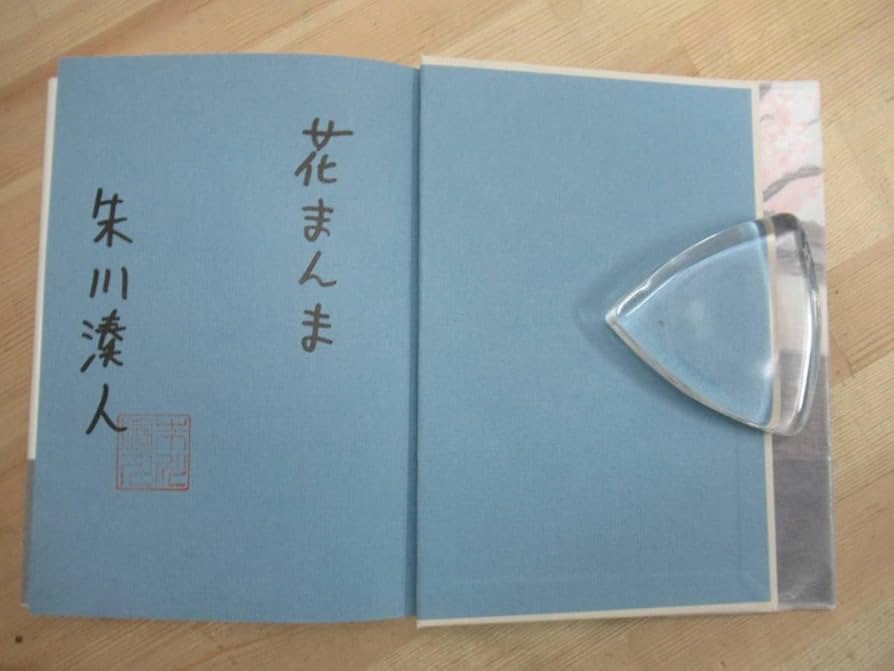 花まんま
朱川湊人